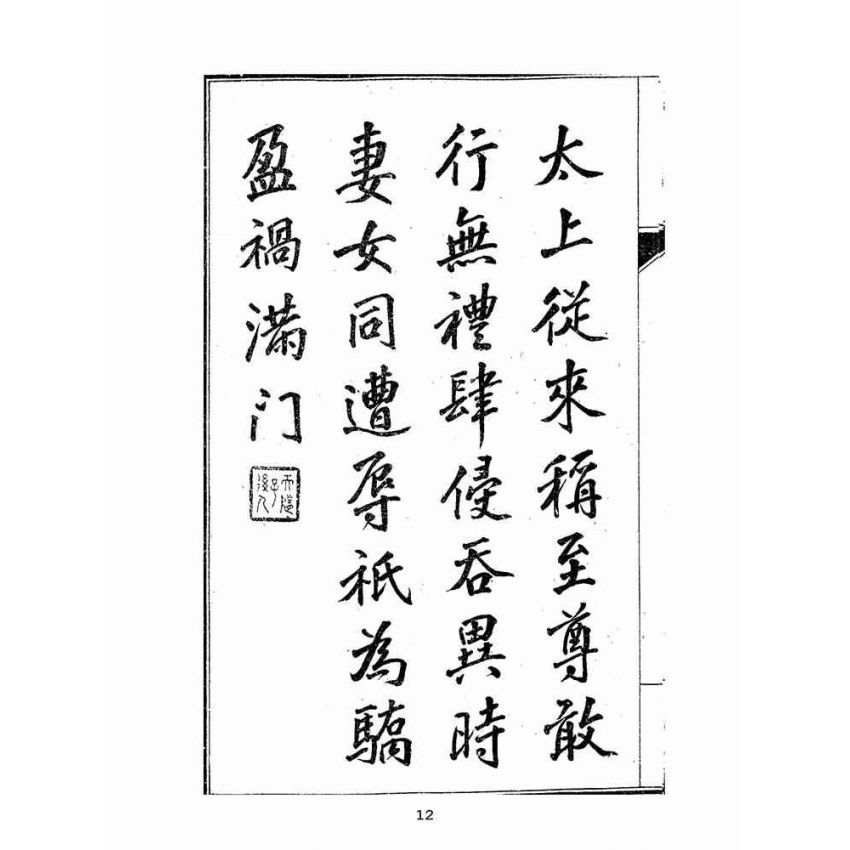 太上從來稱至尊敢
行無禮肆侵吞異時
妻女同遭辱祇為驕
盈禍滿门
12